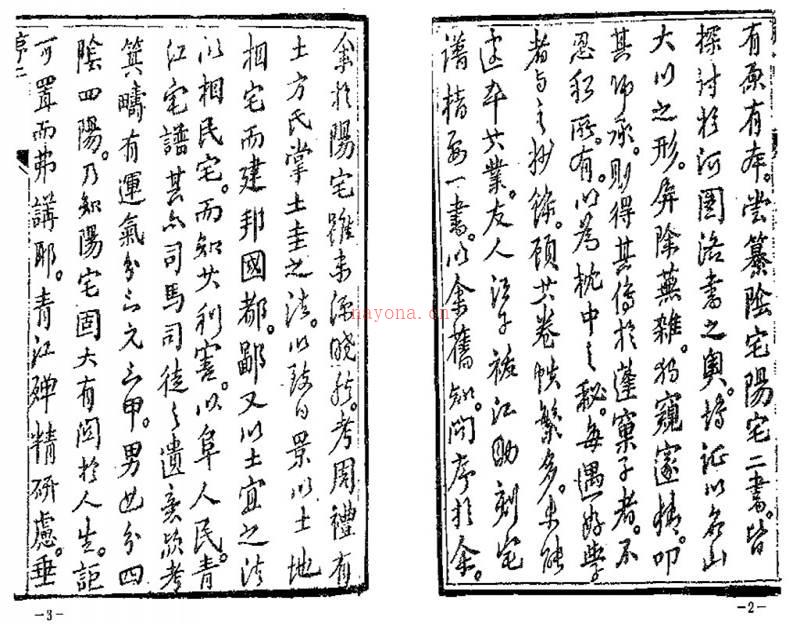 有原有本。嘗纂陰宅陽宅二書。皆
探討於河圖洛書之奧。博証以名山
大川之形。屏除蕪雜。獨窺邃精。叩
其師承。則得其傳於蓬窠子者。不
忍私所有。以為枕中之秘。每遇好學
者与之抄錄。顧其卷帙繁多。未能
速卒其業。友人江助刻宅
譜指要一書。以余舊知。問序於余。
-2-
余於陽宅雖未深曉然。考周禮有
土方氏掌土圭之法。以致日景以土地
相宅而建邦國都。鄙又以土宜之法
以相民宅。而知其利害。以阜人民。青
江宅譜其亦司馬司徒之遺意歟考
箕疇有運氣分三元三甲。男女分四
陰四陽。乃知陽宅固大有関於人生。詎
可置而弗講耶。青江殫精研慮。垂
序二
-3-
nayona.cn